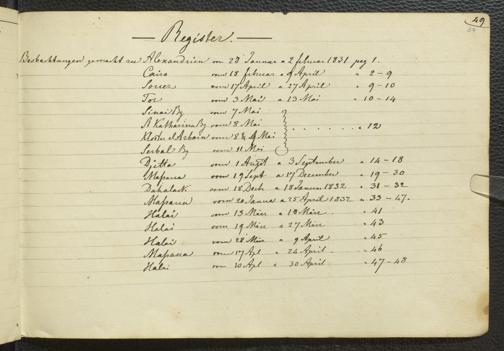 49
Register.
Beobachtungen gemacht zu Alexandrien von 28 Januar a 2 februar 1831. pag 1.
Cairo von 18 februar a 9 April " 2-9
Souez von 17 April a 27 April " 9-10
Tor von 3 Mai a 13 Mai " 10-14
Sinai Bg von 7 Mai
St Katharina Bg von 8 Mai " 12
Kloster el Arbain von 8 & 9 Mai
Serbal Bg von 11 Mai
Djetta von 1 Augst a 3 September " 14-18
Massaua von 19 Sept a 17 December " 19-30
Dahalack von 18 Decb a 18 Januar 1832 " 31-32
Massaua von 20 Janua a 25 April 1832 " 33-47.
Halai von 13 März a 18 März " 41
Halai von 19 März a 27 März " 43
Halai von 28 März a 9 April " 45
Massaua von 17 Apl a 24 April " 46
Halai von 30 Apl a 30 April " 47-48